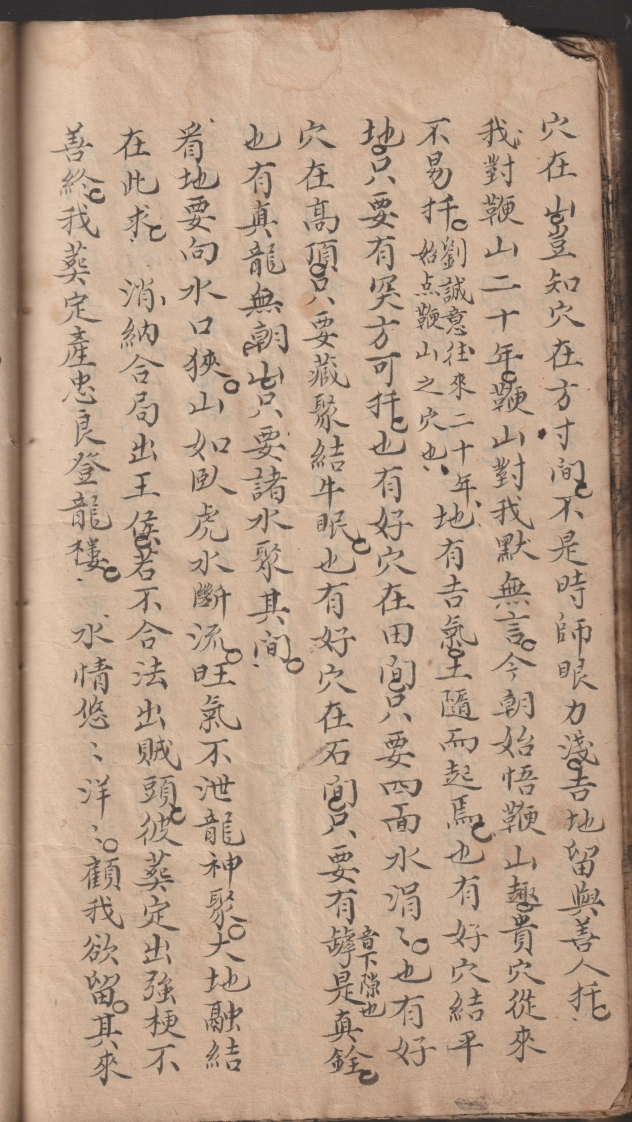 穴在山豈知穴在方寸间不是時師眼力淺吉地留與善人扦
我對鞭山二十年鞭山對我默無言今朝始悟鞭山趣貴穴從來
不易扦劉誠意往來二十年始点鞭山之穴也地有吉氣土隨而起焉也有好穴結平
地只要有突方可扦也有好穴在田间只要四面水涓〻也有好
穴在高頂只要藏聚結牛眠也有好穴在石间只要有罅音下隙也是真銓
也有真龍無朝山只要諸水聚其间
看地要向水口狹山如臥虎水斷流旺氣不泄龍神聚大地融結
在此求消納合局出王侯若不合法出賊頭彼葬定出強梗不
善終我葬定產忠良登龍樓水情悠〻洋〻顧我欲留其來